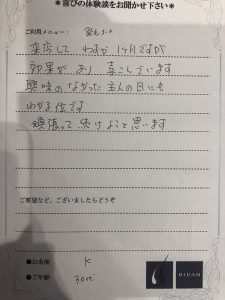 ＊喜びの体験談をお聞かせ下さい＊
ご利用メニュー：
来店して わずか1ヶ月ですが
効果があり 喜こんでいます
興味のなかった主人の目にも
わかる位です
頑張って続けようと思います
ご要望など、ございましたらどうぞ
●お名前 K
●ご年齢 30代
BIDAN